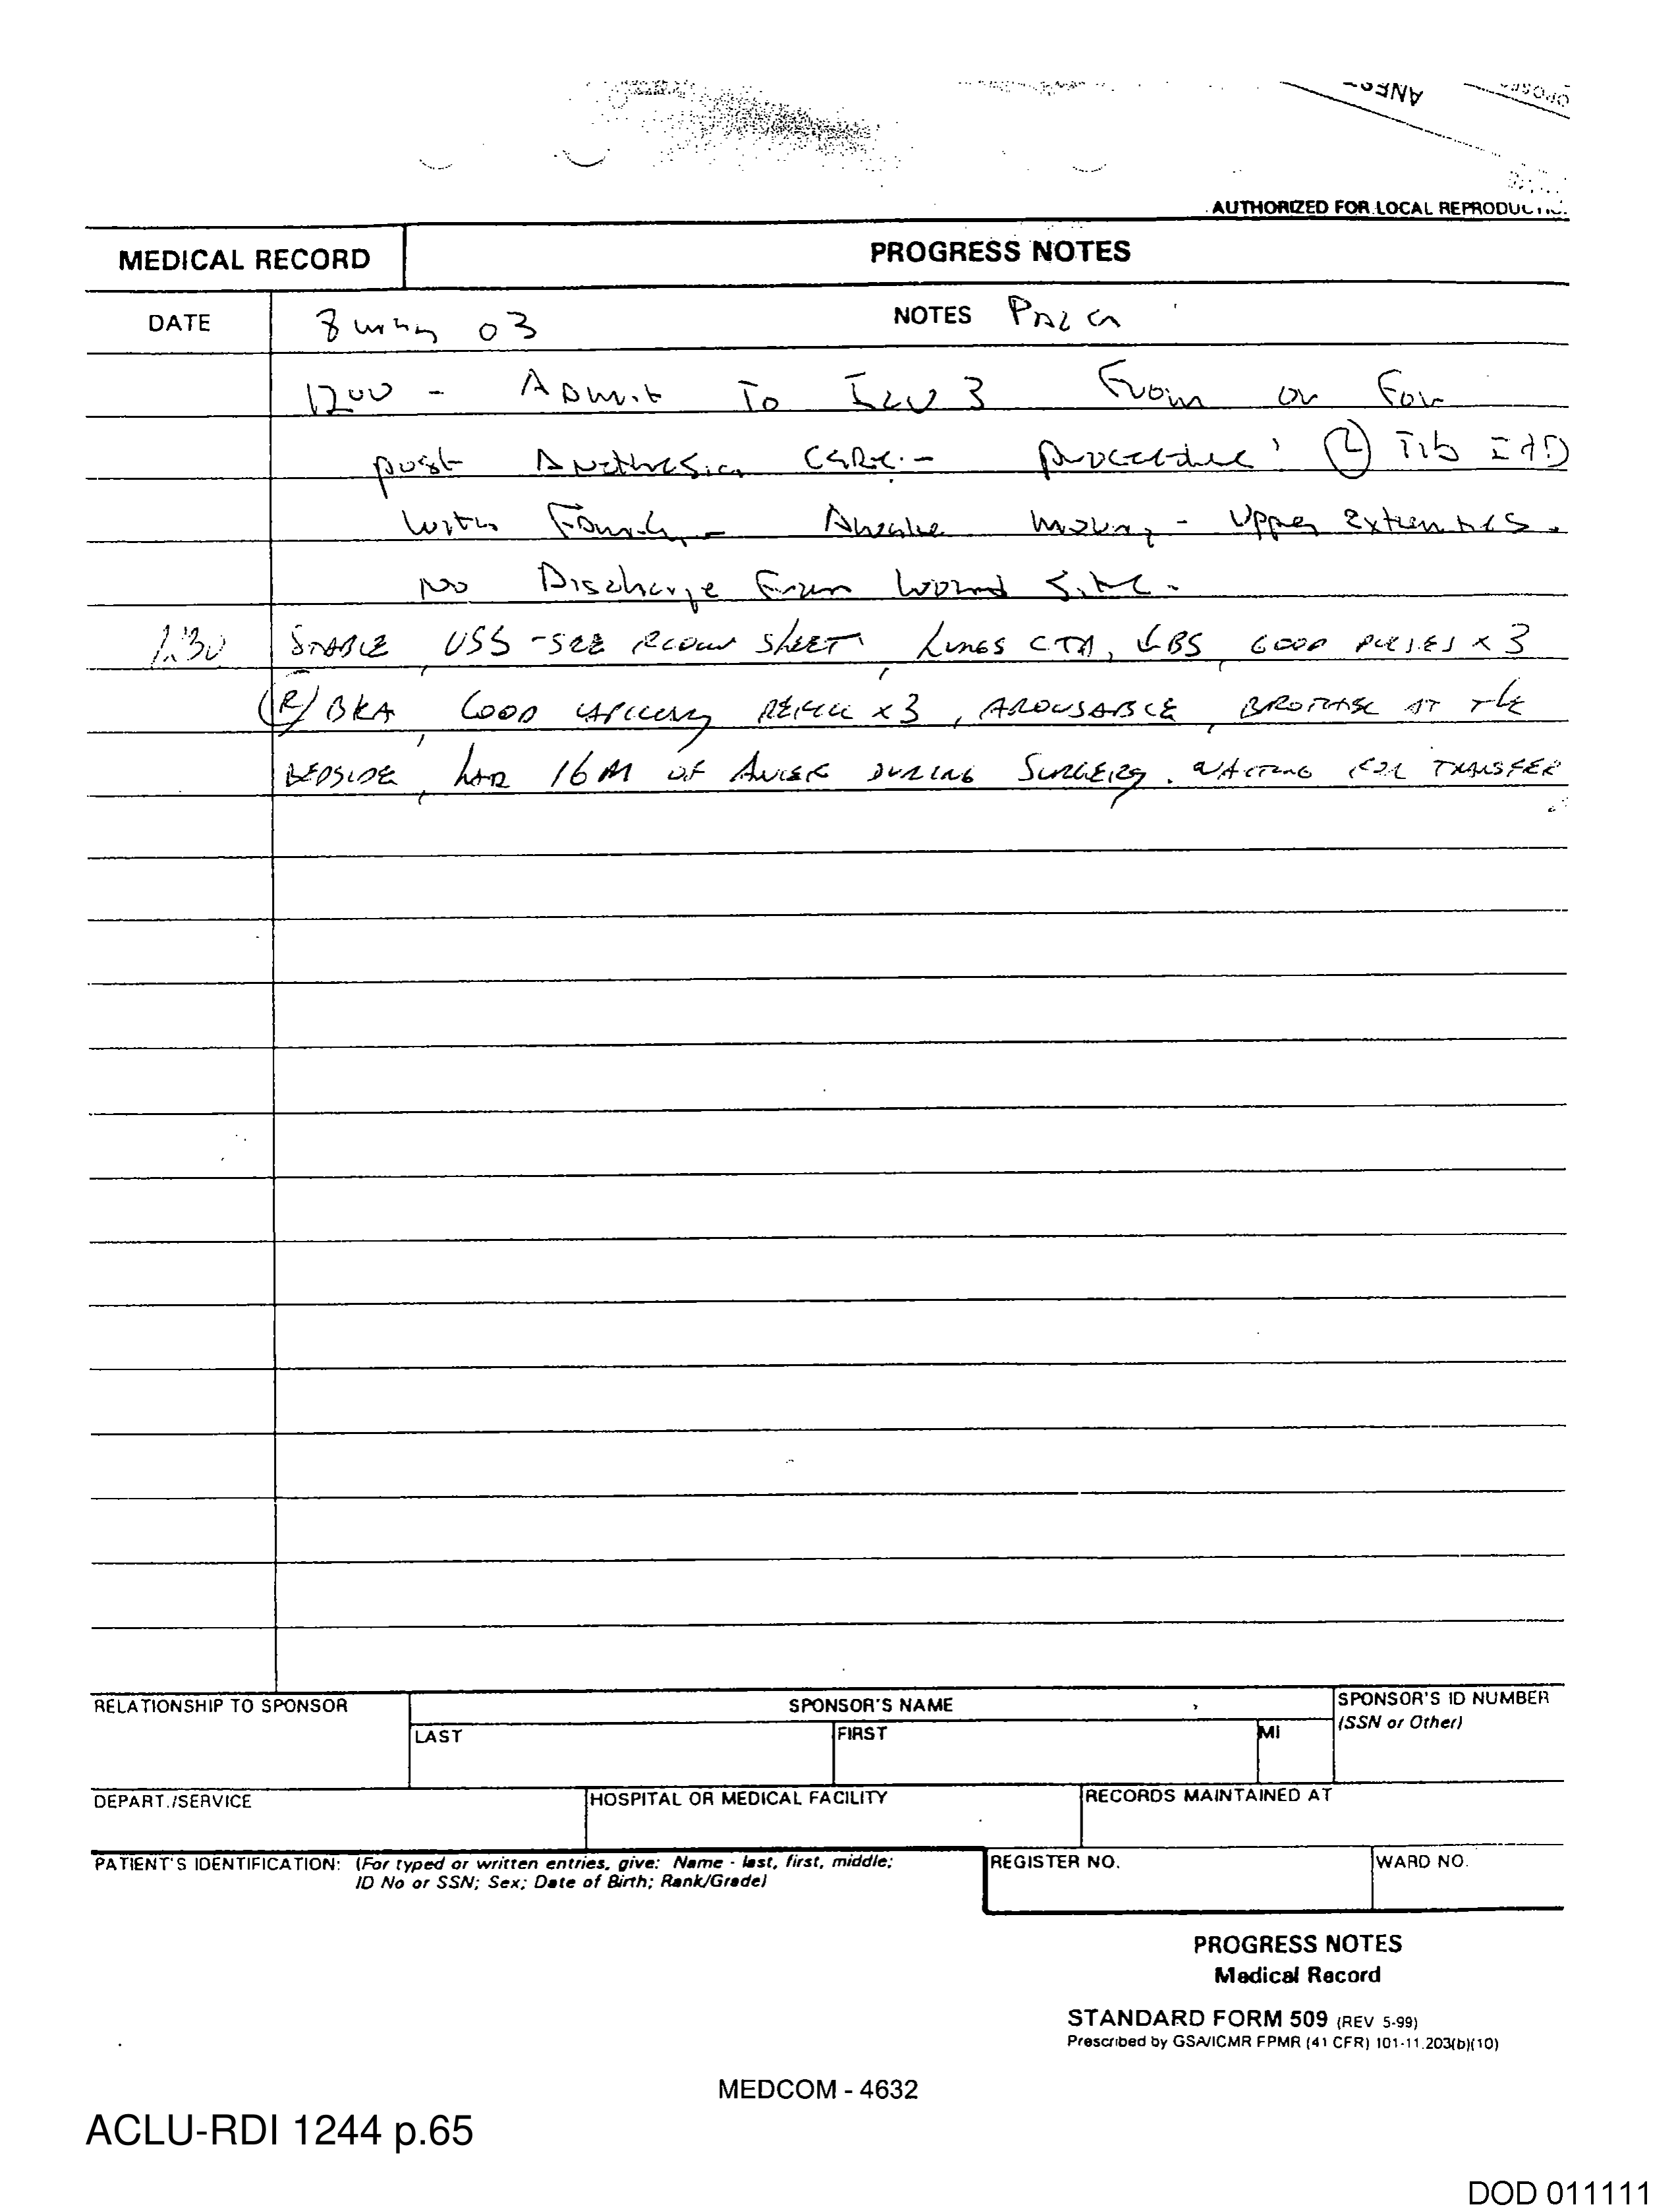 AUTHORIZED FOR LOCAL REPRODUCTIO
MEDICAL RECORD
PROGRESS NOTES
DATE
8 May 03
NOTES
1200 - Admit To ICU 3 From OR For
post Anethesia CARE - procedure: (L) Tib I+D
with Family - Awake moving - Upper Extremities.
No Discharge From Wound Site -
STABLE, VSS - SEE FLOW SHEET, LUNGS CTA, BS, GOOD PULSES x 3
(R) BKA, GOOD CAPILLARY REFILL x 3, AROUSABLE, BROTHER AT THE
BEDSIDE, HAD 16 M OF DURING SURGERY. WAITING FOR TRANSFER
RELATIONSHIP TO SPONSOR
SPONSOR'S NAME
LAST
FIRST
MI
SPONSOR'S ID NUMBER
(SSN or Other)
DEPART./SERVICE
HOSPITAL OR MEDICAL FACILITY
RECORDS MAINTAINED AT
PATIENT'S IDENTIFICATION: (For typed or written entries, give: Name - last, first, middle;
ID No or SSN; Sex; Date of Birth; Rank/Grade)
REGISTER NO.
WARD NO.
PROGRESS NOTES
Medical Record
STANDARD FORM 509 (REV 5-99)
Prescribed by GSA/ICMR FPMR (41 CFR) 101-11.203(b)(10)
MEDCOM - 4632
ACLU-RDI 1244 p.65
DOD 011111